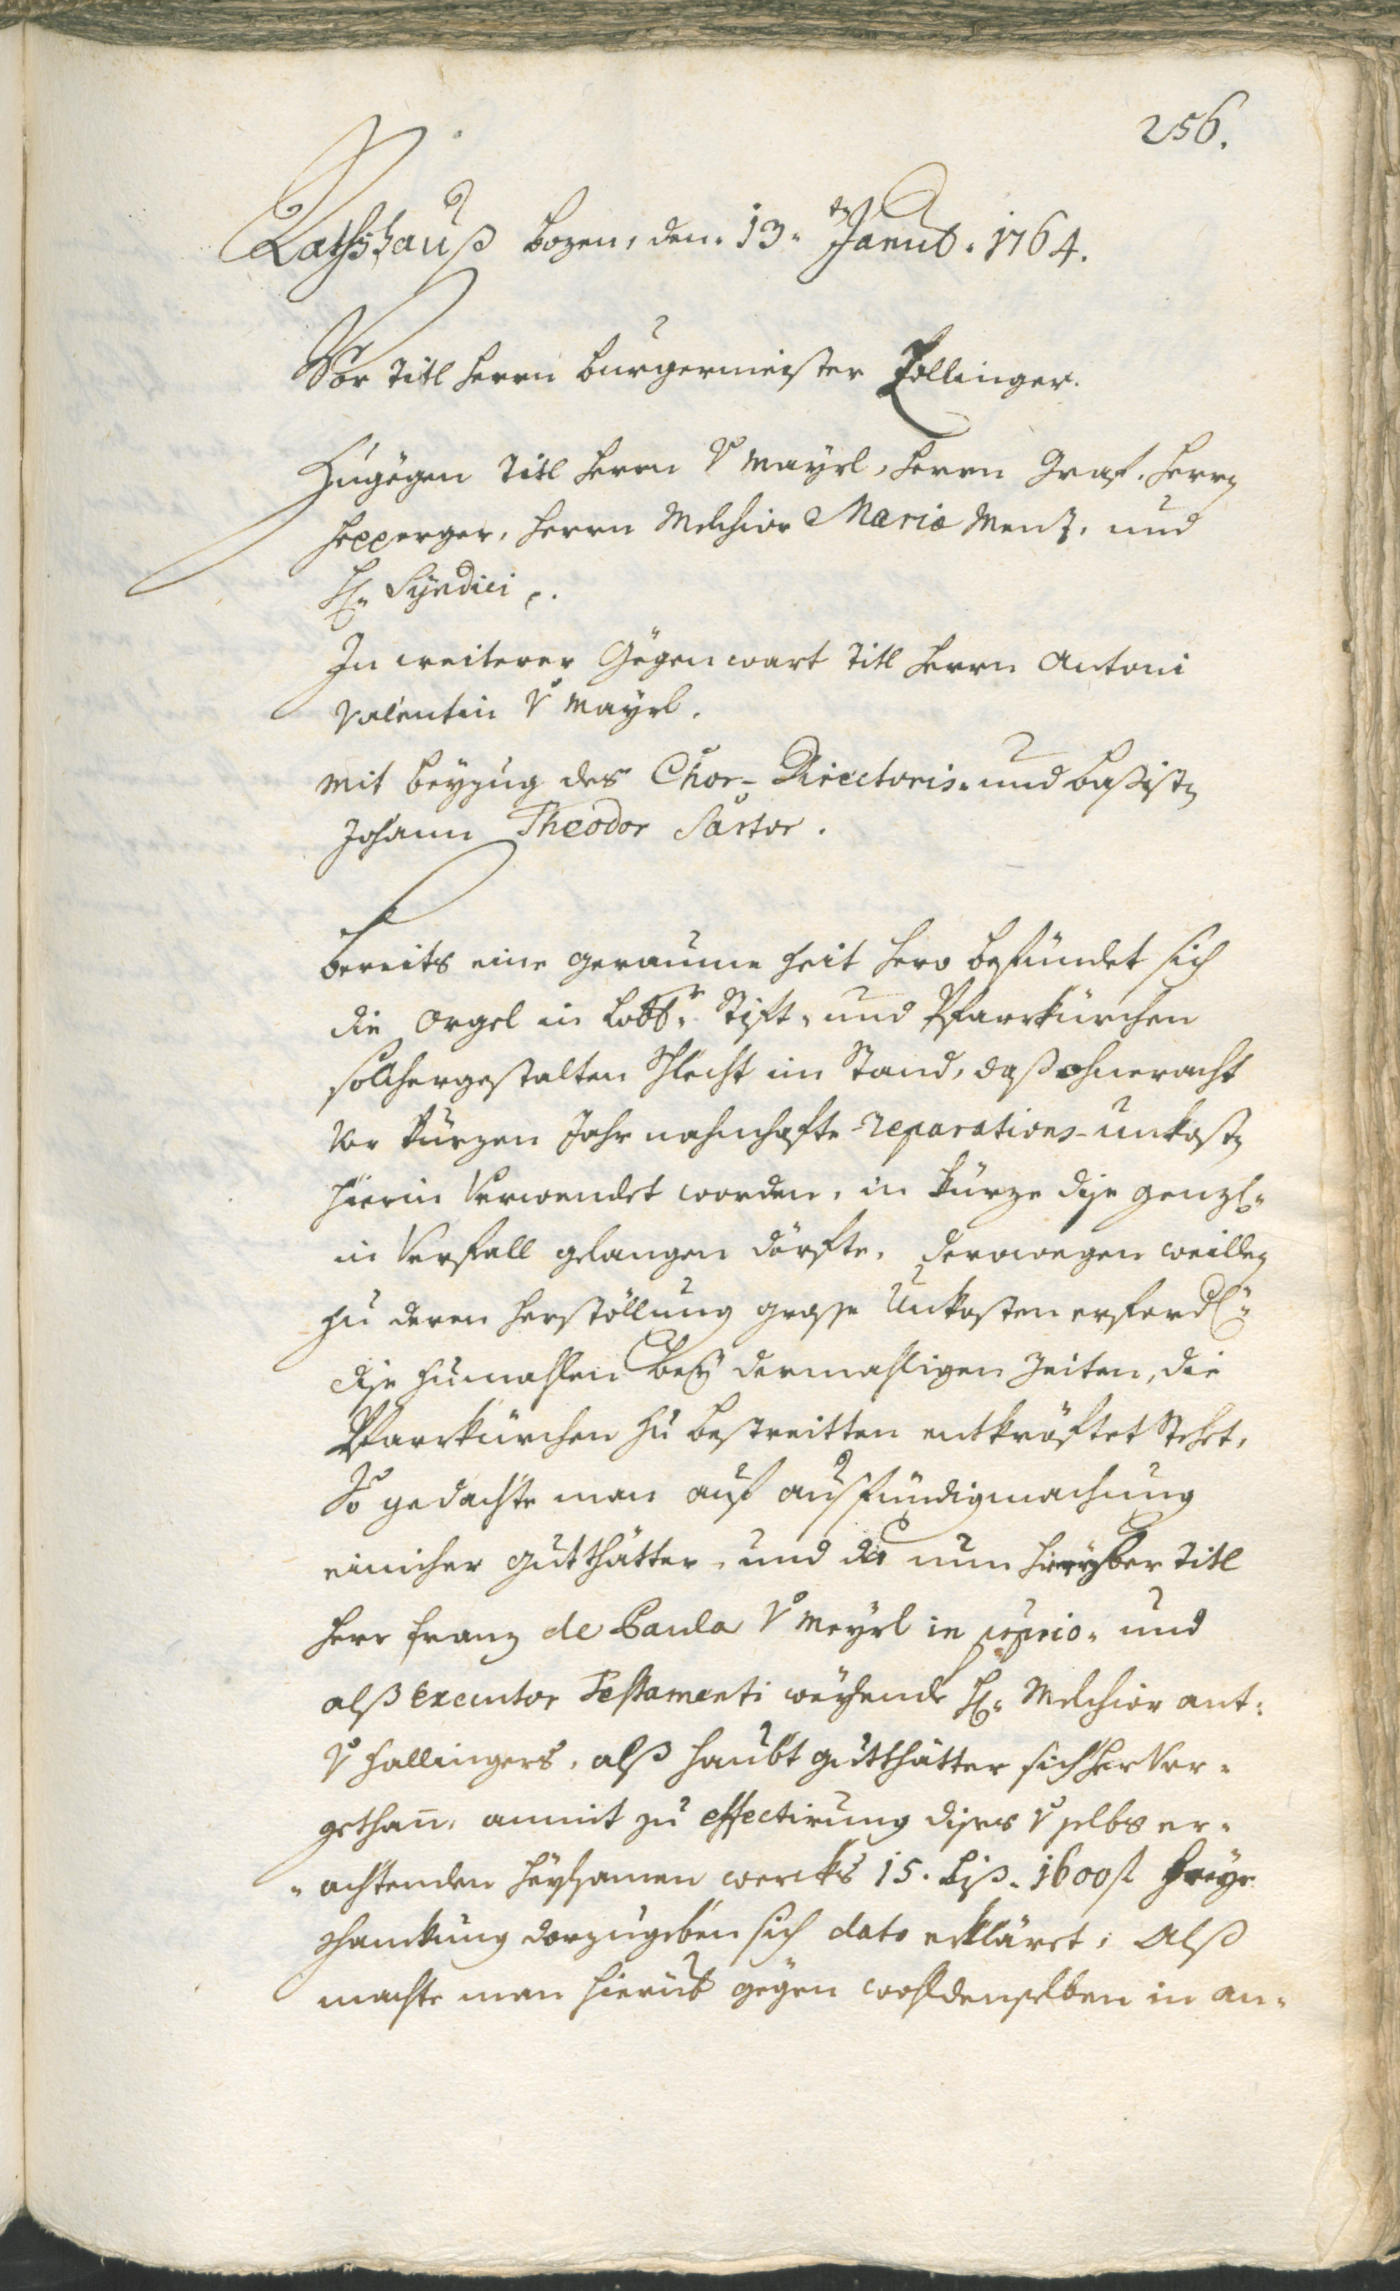 256.
Rathshauß Bozen, den 13ten Januar. 1764.
Vor Titl Herrn Burgermeister Zollinger.
Zugögen Titl Herrn v Mayrl, Herrn Graf. Herrn
Hepperger, Herrn Melchior Maria Menz, und
H: Syndici
In weiterer Gögenwart Titl Herrn Antoni
Valentin v Mayrl.
mit beyzug des Chor-Directoris- und Bassisten
Johann Theodor Sartor.
Bereits eine geraume Zeit hero befündet sich
die Orgel in Lobl: Stift- und Pfarrkürchen
solchergestalten schlecht im Stand, daß ohneracht
vor kurzen Jahr nahmhafte reparations-unkosten
hierin verwendet worden, in kürze dise genzl:
in Verfall gelangen dörfte. derowegen weillen
zu deren Herstöllung grosse Unkosten erforderl:
dise zumahlen bey dermahligen Zeiten, die
Pfarrkürchen zu bestreitten entkröftet stehet,
So gedachte man auf ausfündigmachung
einicher Gutthätter, und da nun hieryber Titl
Herr Franz de Paula v Mayrl in proprio- und
alß Executor Testamenti weylende H: Melchior Ant:
v Hallingers, alß Haubt Gutthätter sich hervor-
gethan, anmit zu effectirung dises v selbs er-
achtenden heylsamen wercks 15. biß 1600 fl
schanckung darzugeben sich dato erkläret; Alß
machte man hierüb gögen wohldenselben in an-